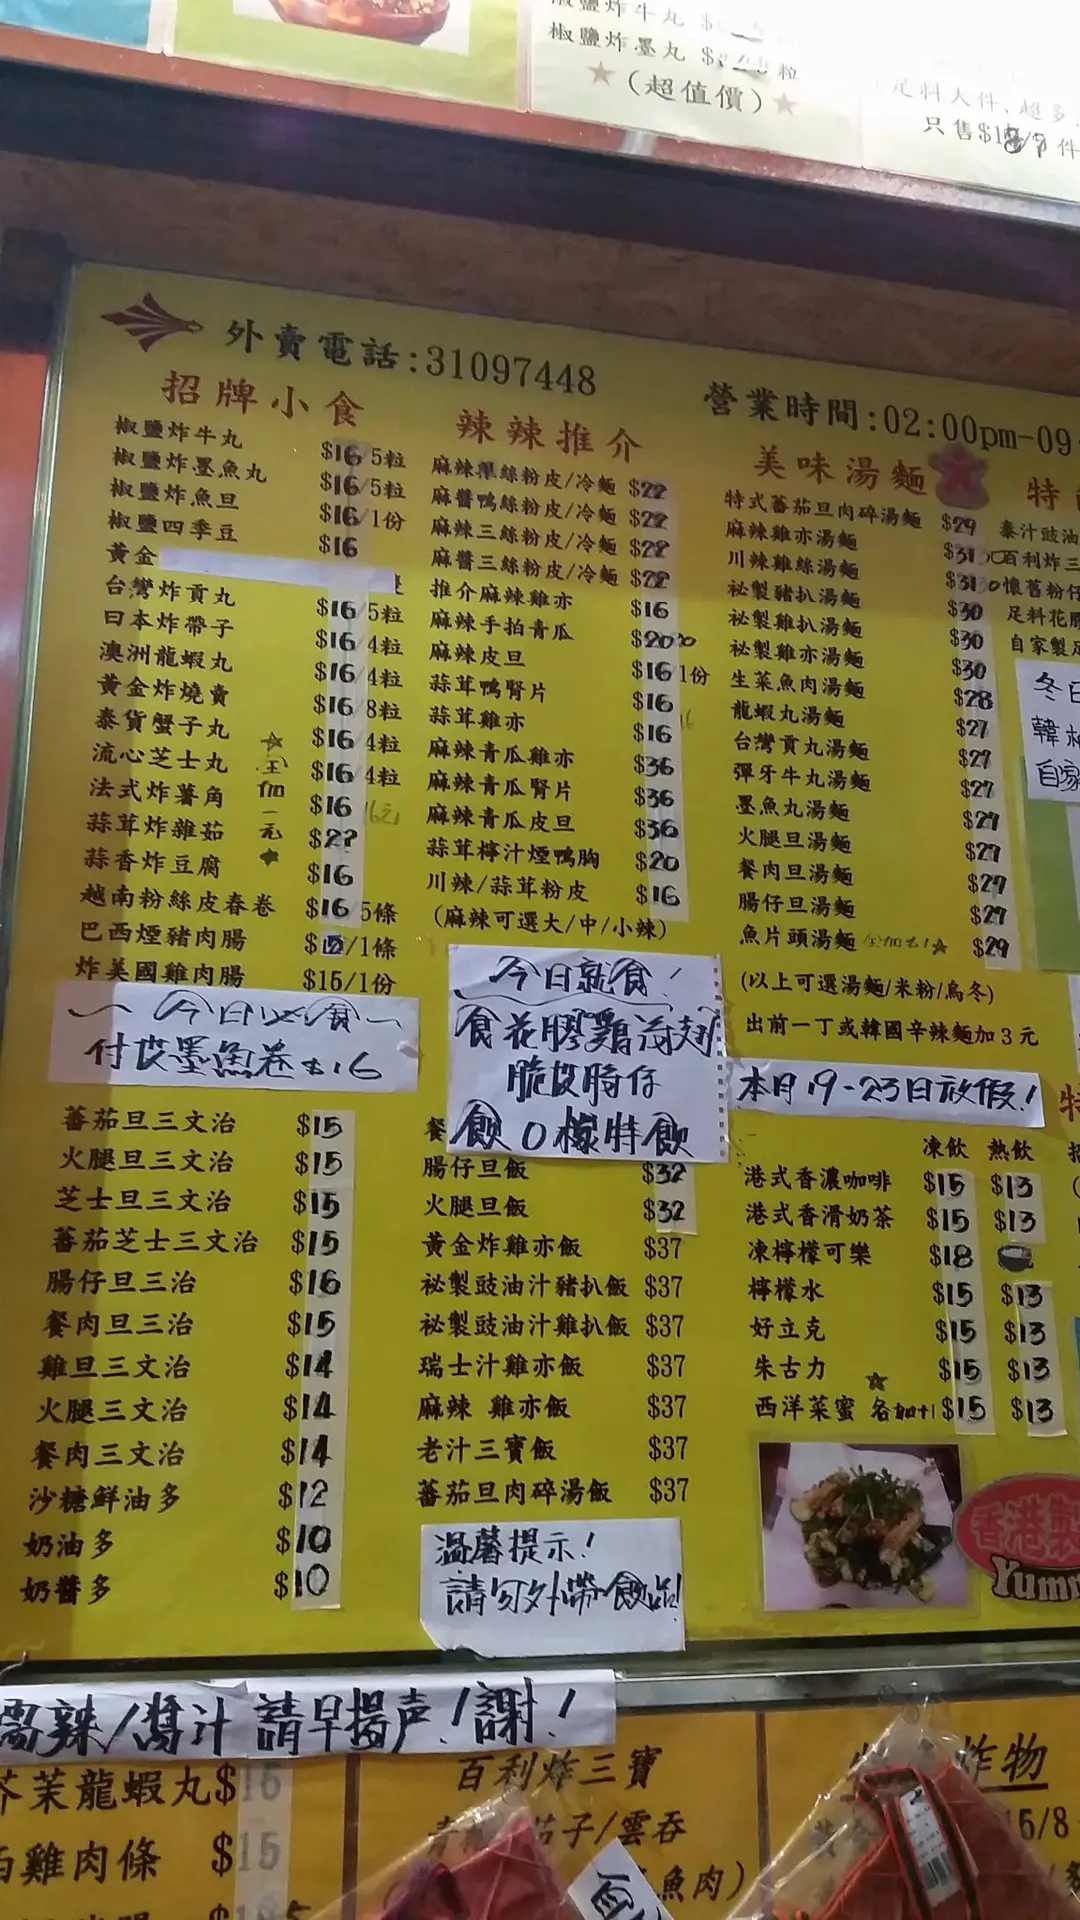 椒鹽炸牛丸
椒鹽炸墨丸
粒
(超值價)
足料大件,超多
只售$1 件
外賣電話:31097448
營業時間:02:00pm-09
招牌小食
椒鹽炸牛丸 $16/5粒
椒鹽炸墨魚丸 $16/5粒
椒鹽炸魚旦 $16/1份
椒鹽四季豆 $16
黃金
台灣炸貢丸 $16/5粒
日本炸帶子 $16/4粒
澳洲龍蝦丸 $16/4粒
黃金炸燒賣 $16/8粒
泰貨蟹子丸 $16/4粒
流心芝士丸 $16/4粒
法式炸薯角 $16
蒜茸炸雜茹 $22
蒜香炸豆腐 $16
越南粉絲皮春卷 $16/5條
巴西煙豬肉腸 /1條
炸美國雞肉腸 $15/1份
全加一元
今日必食
付皮墨魚卷 $16
辣辣推介
麻辣 絲粉皮/冷麵 $22
麻醬鴨絲粉皮/冷麵 $22
麻辣三絲粉皮/冷麵 $22
麻醬三絲粉皮/冷麵 $22
推介麻辣雞亦 $16
麻辣手拍青瓜 $20
麻辣皮旦 $16/1份
蒜茸鴨腎片 $16
蒜茸雞亦 $16
麻辣青瓜雞亦 $36
麻辣青瓜腎片 $36
麻辣青瓜皮旦 $36
蒜茸檸汁煙鴨胸 $20
川辣/蒜茸粉皮 $16
(麻辣可選大/中/小辣)
今日就食!
食花膠雞翅
脆皮腸仔
飲0檬特飲
美味湯麵
特式蕃茄旦肉碎湯麵 $29
麻辣雞亦湯麵 $31
川辣雞絲湯麵 $31
祕製豬扒湯麵 $30
祕製雞扒湯麵 $30
祕製雞亦湯麵 $30
生菜魚肉湯麵 $28
龍蝦丸湯麵 $27
台灣貢丸湯麵 $27
彈牙牛丸湯麵 $27
墨魚丸湯麵 $27
火腿旦湯麵 $27
餐肉旦湯麵 $27
腸仔旦湯麵 $27
魚片頭湯麵 $29
(以上可選湯麵/米粉/烏冬)
出前一丁或韓國辛辣麵加3元
本月19-23日放假!
特
泰汁豉油
百利炸三
懷舊粉仔
足料花膠
自家製足
冬日
韓
自家
蕃茄旦三文治 $15
火腿旦三文治 $15
芝士旦三文治 $15
蕃茄芝士三文治 $15
腸仔旦三治 $16
餐肉旦三治 $15
雞旦三文治 $14
火腿三文治 $14
餐肉三文治 $14
沙糖鮮油多 $12
奶油多 $10
奶醬多 $10
餐
腸仔旦飯 $32
火腿旦飯 $32
黃金炸雞亦飯 $37
祕製豉油汁豬扒飯 $37
祕製豉油汁雞扒飯 $37
瑞士汁雞亦飯 $37
麻辣 雞亦飯 $37
老汁三寶飯 $37
蕃茄旦肉碎湯飯 $37
溫馨提示!
請勿外帶飲品!
凍飲 熱飲
港式香濃咖啡 $15 $13
港式香滑奶茶 $15 $13
凍檸檬可樂 $18
檸檬水 $15 $13
好立克 $15 $13
朱古力 $15 $13
西洋菜蜜 各加+1 $15 $13
特
香港製
Yumm
需辣/醬汁請早揚声!謝!
芥茉龍蝦丸$16
雞肉條 $15
百利炸三寶
茄子/雲吞
魚肉)
炸物
15/8